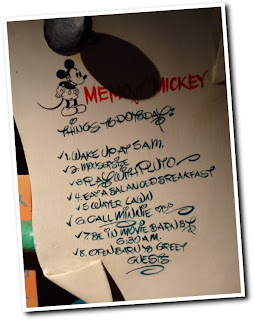 MEMO MICKEY
THINGS TO DO TODAY
✓1. WAKE UP AT 5 A.M.
✓2. MOUSERSIZE
✓3. PLAY WITH PLUTO
✓4. EAT A BALANCED BREAKFAST
✓5. WATER LAWN
✓6. CALL MINNIE
✓7. BE IN MOVIE BARN BY
6:30 A.M.
✓8. OPEN BARN TO GREET
GUESTS